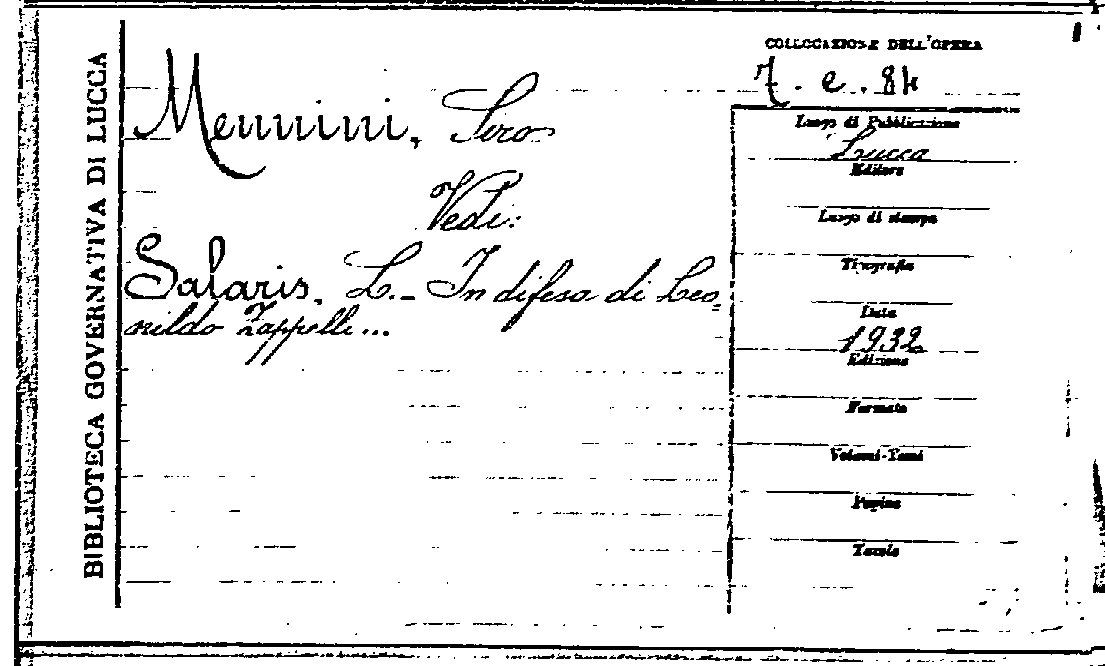 BIBLIOTECA GOVERNATIVA DI LUCCA
COLLOCAZIONE DELL'OPERA
7. e. 84
Mennini, Siro
Vedi:
Salaris, L.- In difesa di Leo=
nildo Zappelli...
Luogo di Pubblicazione
Lucca
Editore
Luogo di stampa
Tipografia
Data
1932
Edizione
Formato
Volumi-Tomi
Pagine
Tavole